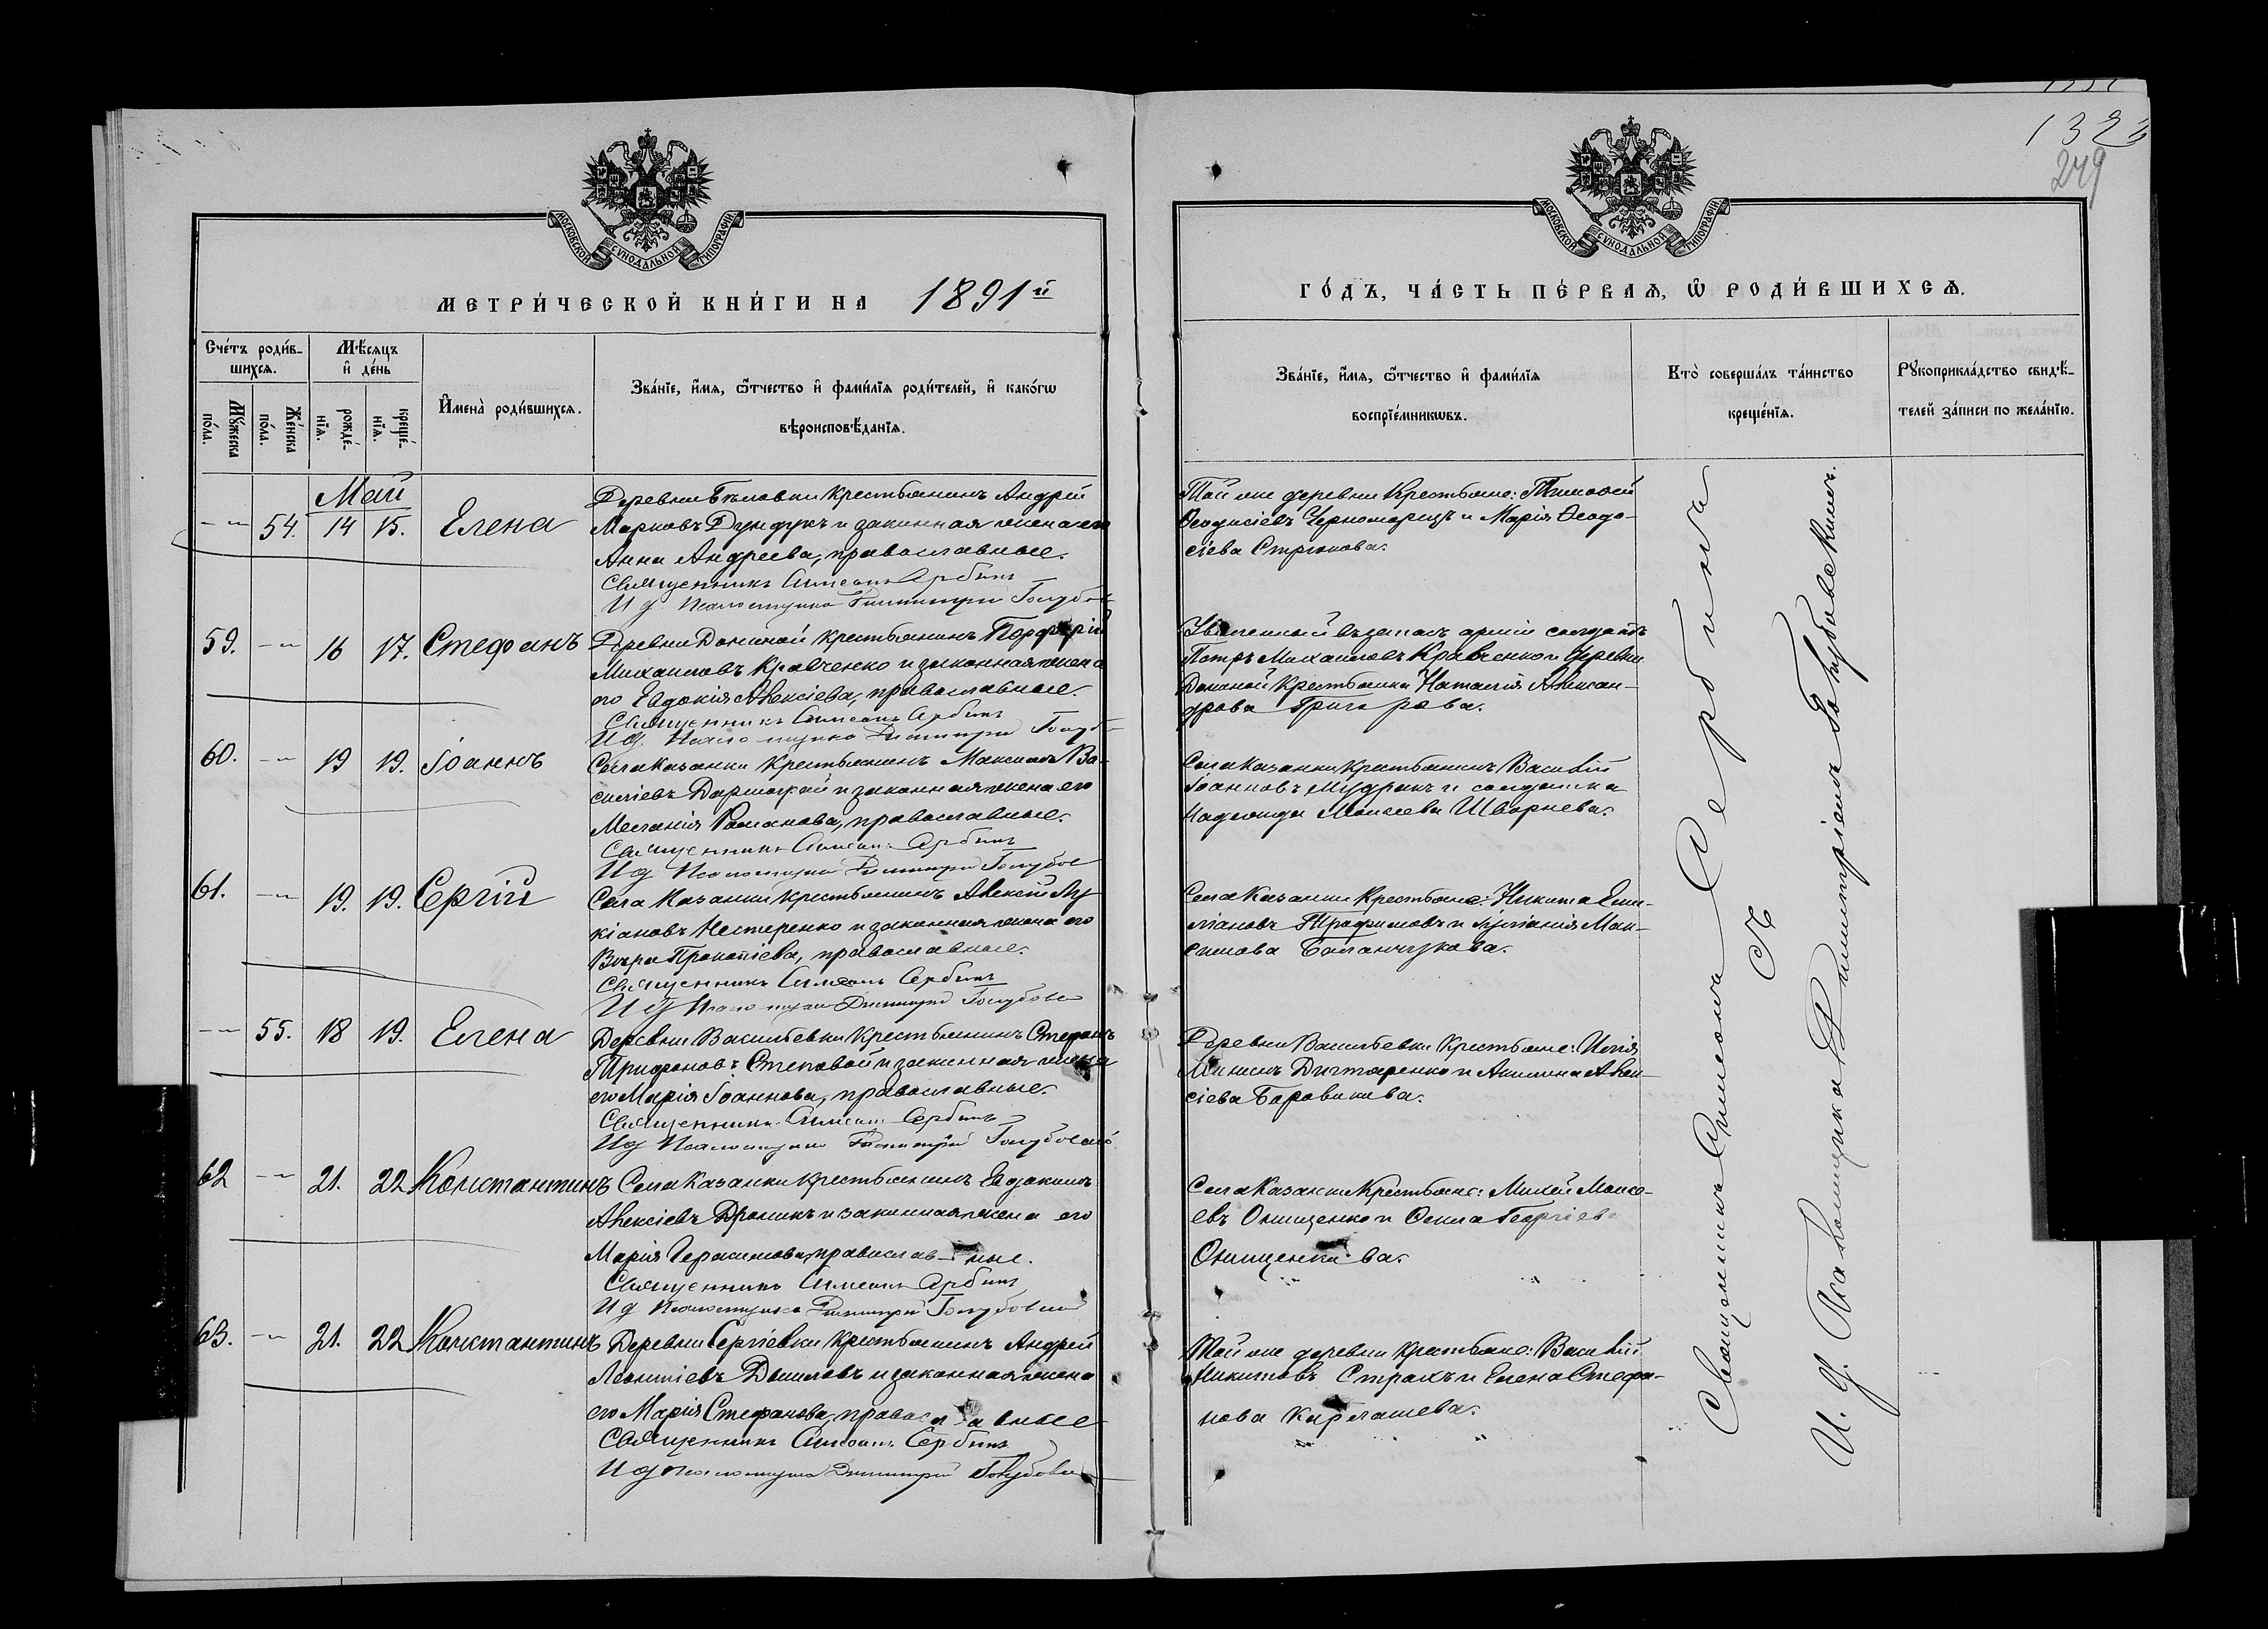 1323
249
МОСКОВСКОЙ СѴНОДАЛЬНОЙ ТИПОГРАФІИ
МОСКОВСКОЙ СѴНОДАЛЬНОЙ ТИПОГРАФІИ
МЕТРИ́ЧЕСКОЙ КНИ́ГИ НА 1891й
ГО́ДЪ, ЧА́СТЬ ПЕ́РВАѦ, Ѡ҆ РОДИ́ВШИХСѦ.
Сче́тъ роди́в-
шихсѧ.
Мѣ́сѧцъ
и҆ де́нь
Мꙋ́жеска
по́ла.
Же́нска
по́ла.
рожде́-
нїѧ.
креще́-
нїѧ.
И҆мена̀ роди́вшихсѧ.
Зва́нїе, и҆́мѧ, ѻ҆́тчество и҆ фами́лїѧ роди́телей, и҆ како́гѡ
вѣроисповѣ́данїѧ.
Зва́нїе, и҆́мѧ, ѻ҆́тчество и҆ фами́лїѧ
воспрїе́мникѡвъ.
Кто̀ соверша́лъ та́инство
креще́нїѧ.
Рꙋкоприкла́дство свидѣ́-
телей за́писи по жела́нїю.
Май
54. 14 15. Елена
Деревни Бѣловки крестьянинъ Андрей
Марковъ Дундукъ и законная жена его
Анна Андреева, православные.
Священникъ Симеонъ Сербинъ
И д Псаломщика Димитрій Голубов
Той же деревни крестьяне: Тимофей
Ѳеодосіевъ Черноморецъ и Марія Ѳеодо-
сіева Стрюкова.
59. 16 17. Стефанъ
Деревни Дониной крестьянинъ Порфирій
Михаиловъ Кравченко и законная жена
его Евдокія Алексіева, православные.
Священникъ Симеонъ Сербинъ
И д Псаломщика Димитрій Голуб
Уволенный въ запасъ арміи солдатъ
Петръ Михаиловъ Кравченко и деревни
Дониной крестьянка Наталія Алексан-
дрова
60. 19 19. Іоаннъ
Села Казанки крестьянинъ Максимъ Ва-
силіевъ и законная жена его
Меланія Романова, православные.
Священникъ Симеонъ Сербинъ
И д Псаломщика Димитрій Голубов
Села Казанки крестьянинъ Василій
Іоанновъ Мудракъ и солдатка
Надежда Моисеева Шворнева.
61. 19. 19. Сергій
Села Казанки крестьянинъ Алексій Лу-
кіановъ Нестеренко и законная жена его
Вѣра Прокопіева, православные.
Священникъ Симеонъ Сербинъ
И д Псаломщика Димитрій Голубов
Села Казанки крестьяне: Никита Еми-
ліановъ Трофимовъ и Іуліанія Мак-
симова Баланчукова.
55. 18 19. Елена
Деревни Васильевки крестьянинъ Стефанъ
Трифоновъ Степовой и законная жена
его Марія Іоаннова, православные.
Священникъ Симеонъ Сербинъ
И д Псаломщика Димитрій Голубовскій
Деревни Васильевки крестьяне: Илія
Мининъ Дигтаренко и Акилина Алек-
сіева Боровикова.
62 21. 22 Константинъ
Села Казанки крестьянинъ Евдокимъ
Алексіевъ и законная жена его
Марія Герасимова, православные.
Священникъ Симеонъ Сербинъ
И д Псаломщика Димитрій Голубовскій
Села Казанки крестьяне: Михей Моисе-
евъ Онищенко и Георгіева
Онищенкова.
63. 21. 22 Константинъ
Деревни Сергіевки крестьянинъ Андрей
Леонтіевъ Даниловъ и законная жена
его Марія Стефанова, православные
Священникъ Симеонъ Сербинъ
И д Псаломщика Димитрій Голубовск
Той же деревни крестьяне: Василій
Никитовъ Страхъ и Елена Стефа-
нова Карлашева.
Священникъ Симеонъ Сербинъ
съ
И. д. Псаломщика Димитріемъ Голубовскимъ.